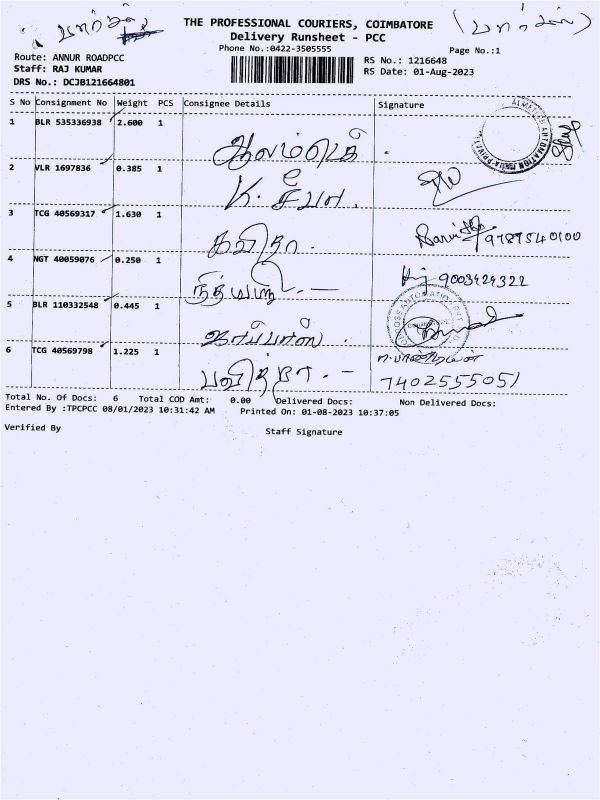 THE PROFESSIONAL COURIERS, COIMBATORE
Delivery Runsheet - PCC
Phone No.:0422-3505555
Page No.:1
Route: ANNUR ROADPCC
Staff: RAJ KUMAR
DRS No.: DCJB121664801
RS No.: 1216648
RS Date: 01-Aug-2023
S No Consignment No Weight PCS Consignee Details Signature
1 BLR 535336938 2.600 1
2 VLR 1697836 0.385 1
3 TCG 40569317 1.630 1
கவிதா 9789540100
4 NGT 40059076 0.250 1
9003429322
5 BLR 110332548 0.445 1
6 TCG 40569798 1.225 1
பவித்ரா 7402555051
Total No. Of Docs: 6 Total COD Amt: 0.00 Delivered Docs: Non Delivered Docs:
Entered By :TPCPCC 08/01/2023 10:31:42 AM Printed On: 01-08-2023 10:37:05
Verified By Staff Signature